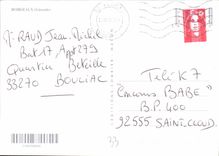 BORDEAUX (Gironde)
Mr RAUD Jean-Michel
Bat 17 Apt 279
Quentin Bételle
33270 BOULIAC
Télé K7
Concours BABE
B.P. 400
92555 SAINT-CLOUD
33